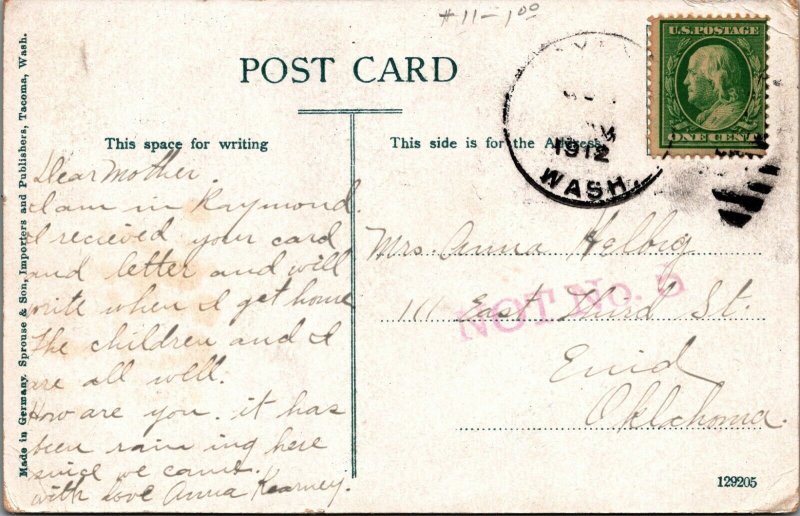 #11-1.00
U.S. POSTAGE
ONE CENT
1912
WASH.
POST CARD
This space for writing
This side is for the Address
Dear Mother.
I am in Raymond.
I recieved your card
and letter and will
write when I get home
The children and I
are all well.
How are you. it has
been rain ing here
since we came.
with love Anna Kearney.
Mrs. Anna Helbig
111 East Third St.
Enid
Oklahoma.
NOT No.
129205
Made in Germany. Sprouse & Son, Importers and Publishers, Tacoma, Wash.